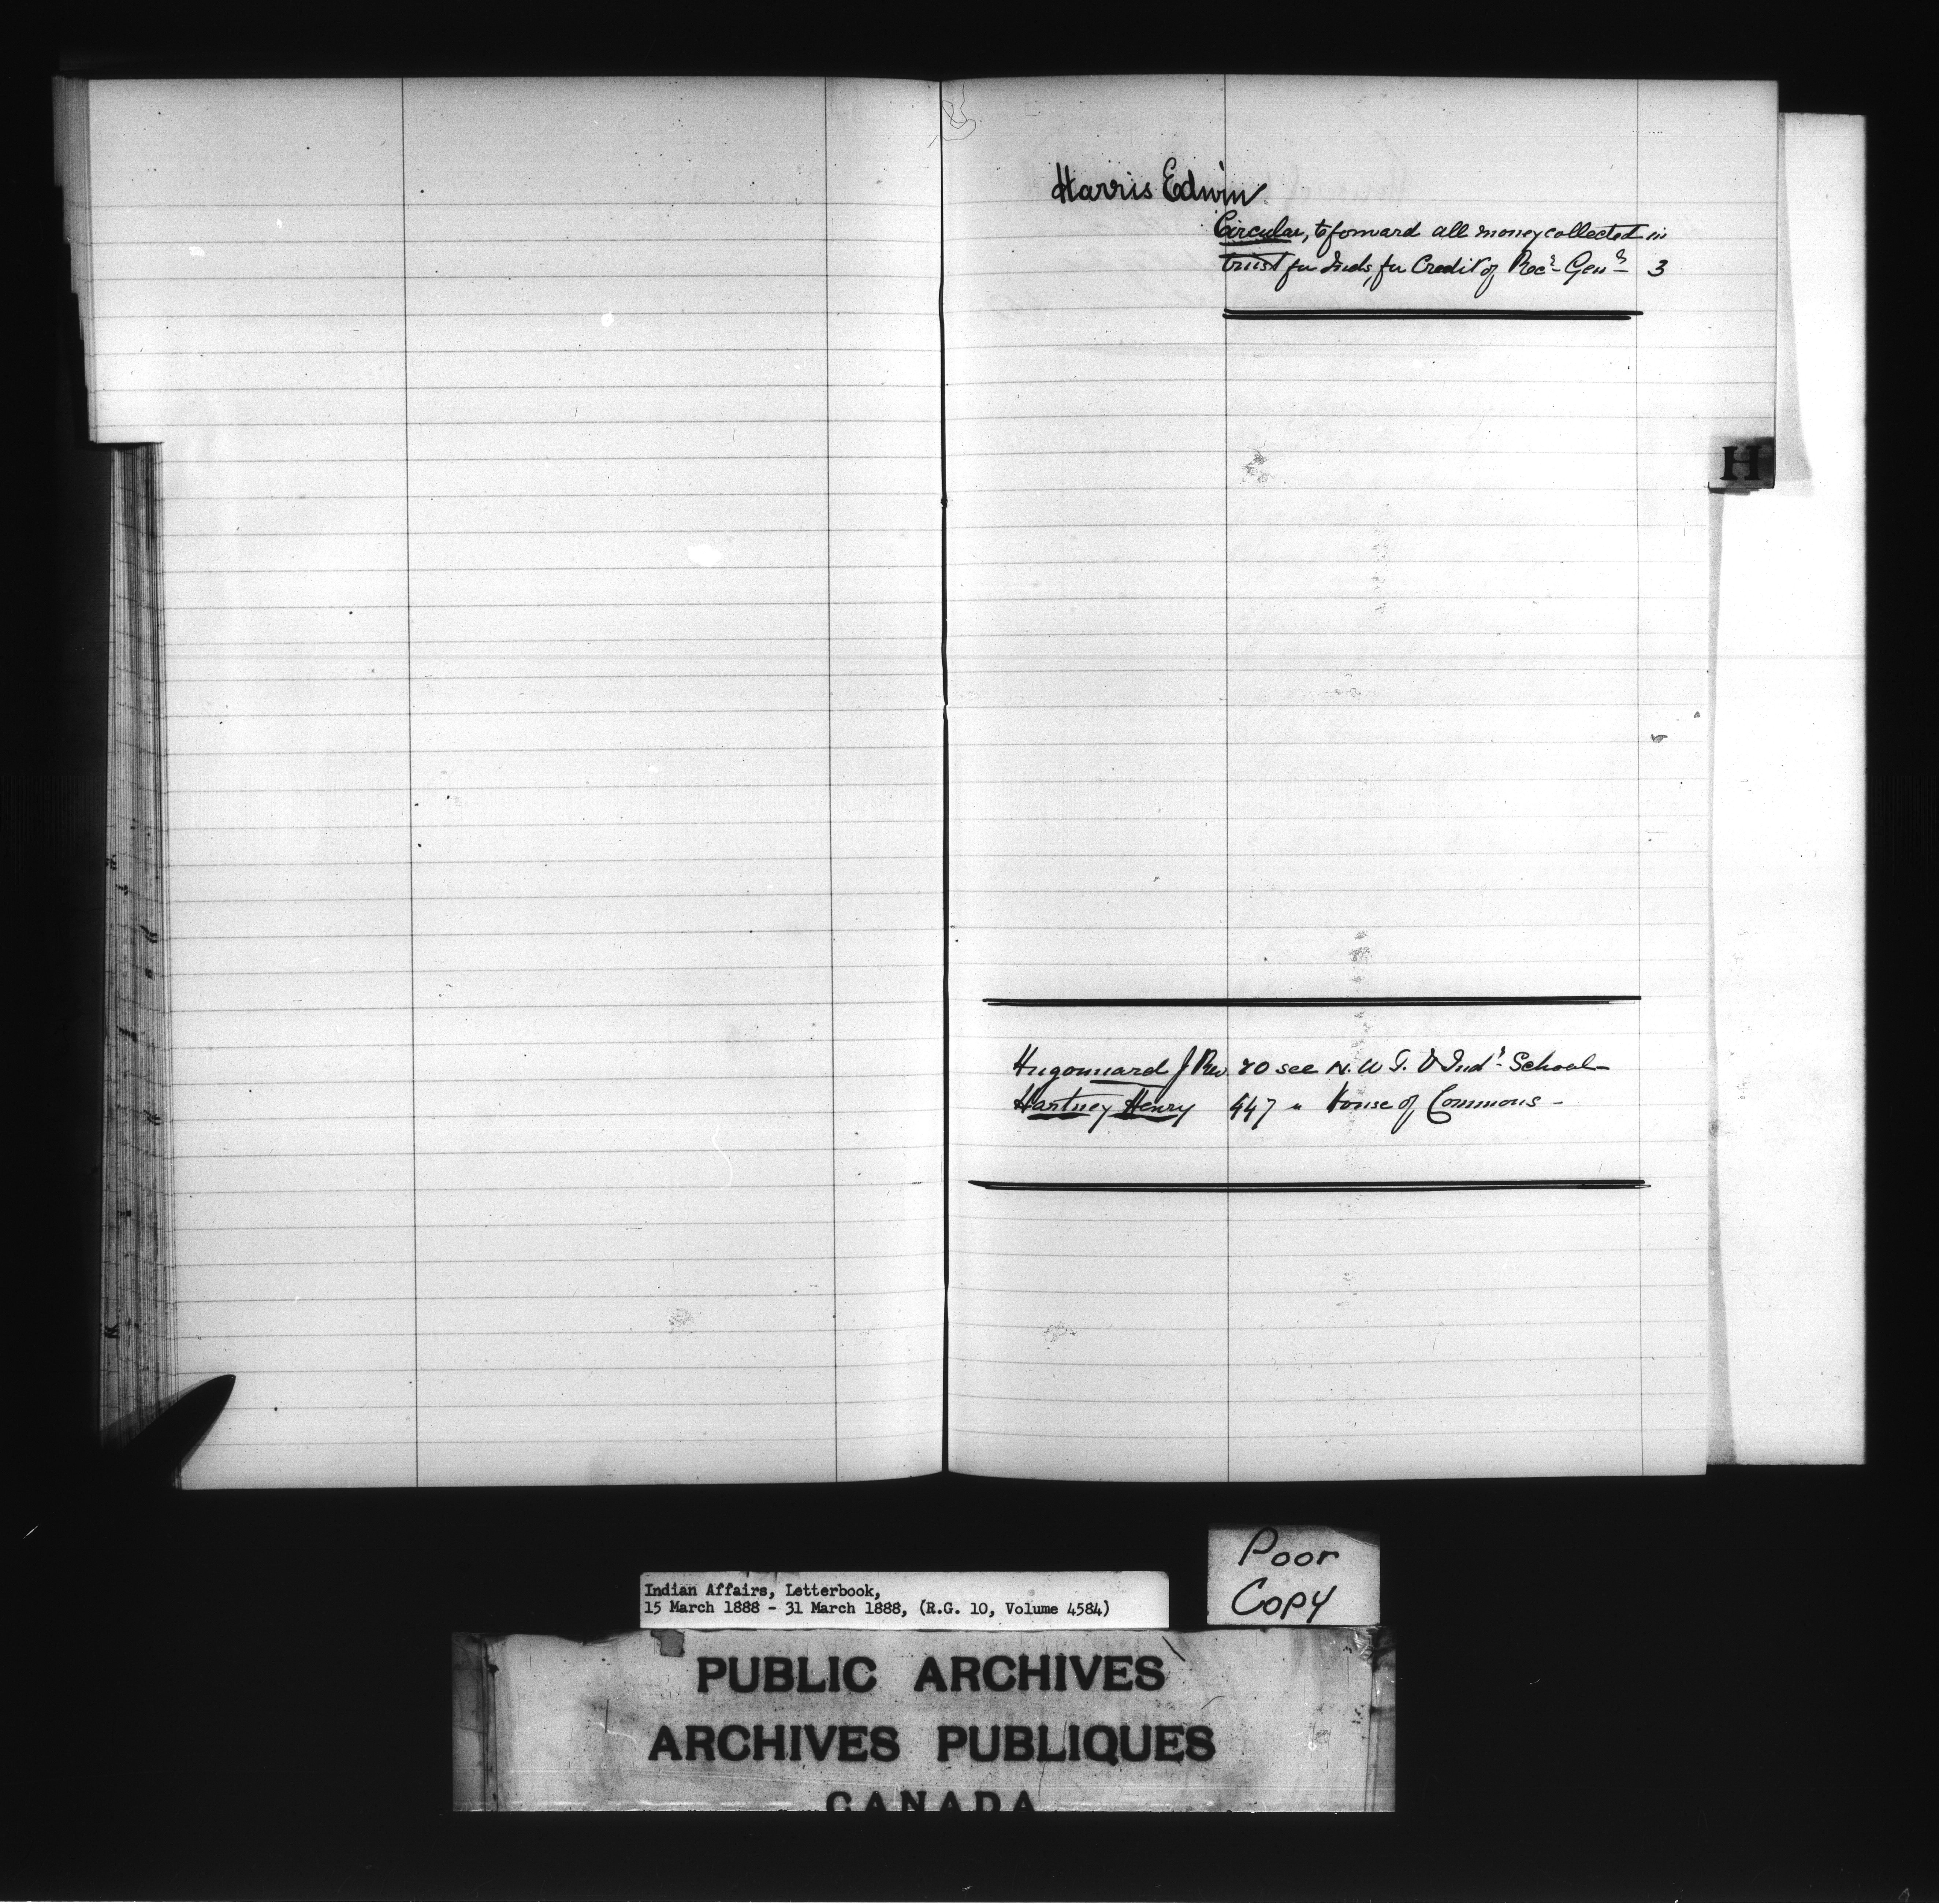 Harris Edwin
Circular, to forward all money collected in
trust for Inds, for Credit of Rec.r Gen.l 3
H
Hugonnard J Rev. 20 see N. W. T. Ind.l School
Hartney Henry 447 " House of Commons -
Poor
Copy
Indian Affairs, Letterbook,
15 March 1888 - 31 March 1888, (R.G. 10, Volume 4584)
PUBLIC ARCHIVES
ARCHIVES PUBLIQUES
CANADA